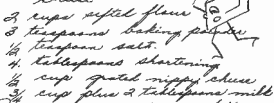 2 cups sifted flour
3 teaspoons baking powder
½ teaspoon salt
4 tablespoons shortening
½ cup grated nippy cheese
¾ cup plus 2 tablespoons milk